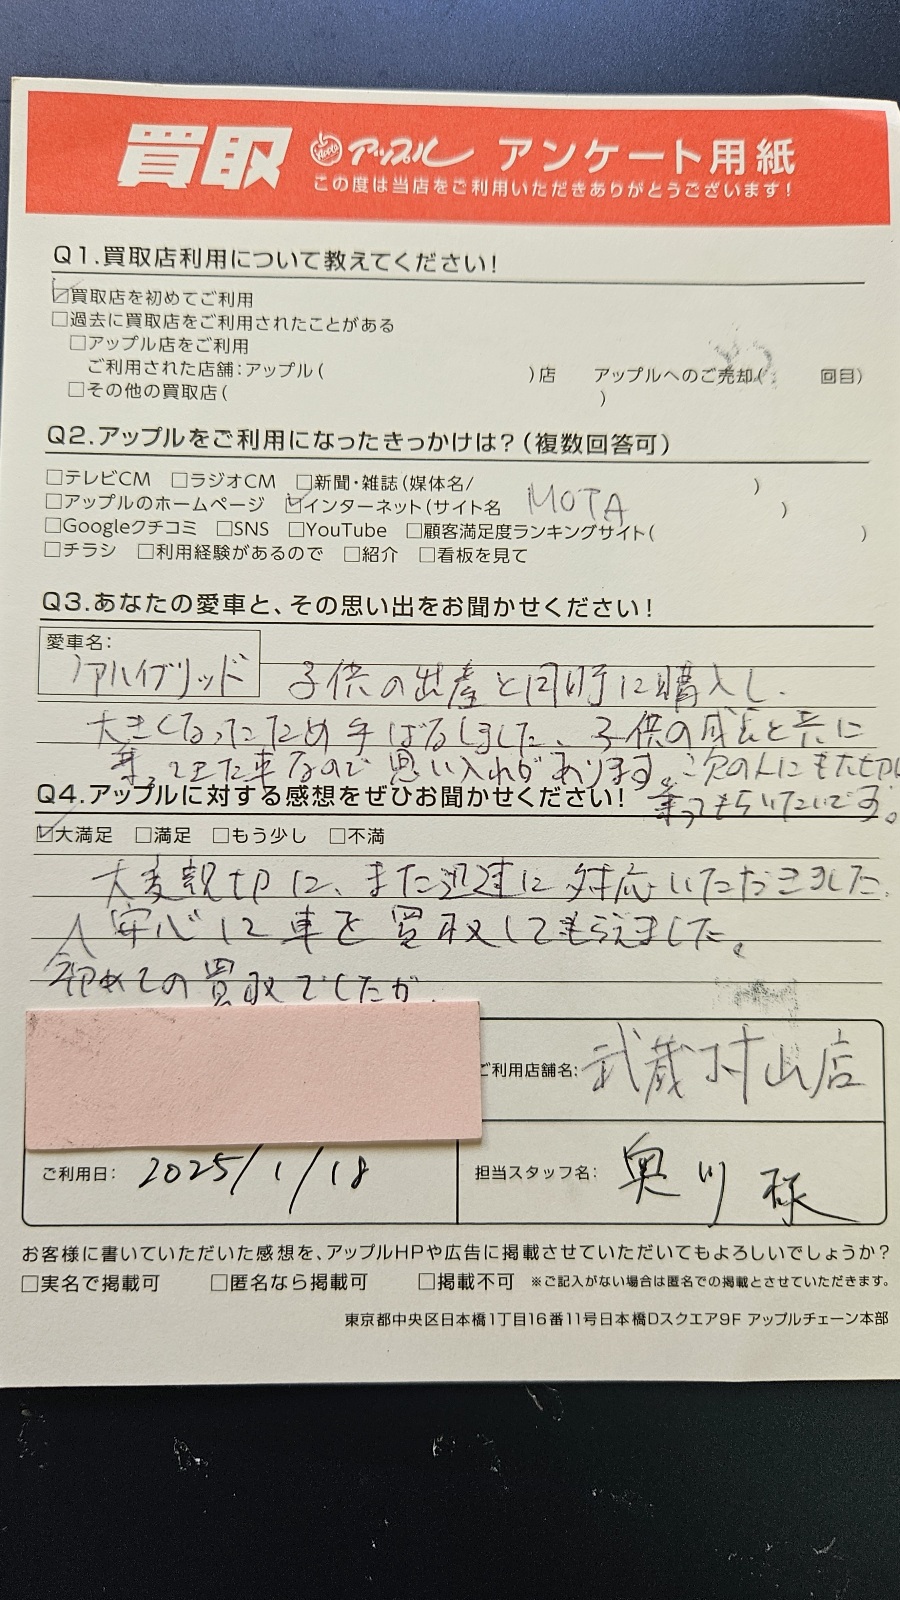 買取 アップル アンケート用紙
この度は当店をご利用いただきありがとうございます!
Q1.買取店利用について教えてください!
☑買取店を初めてご利用
□過去に買取店をご利用されたことがある
□アップル店をご利用
ご利用された店舗:アップル( )店 アップルへのご売却( 回目)
□その他の買取店( )
Q2.アップルをご利用になったきっかけは?(複数回答可)
□テレビCM □ラジオCM □新聞・雑誌(媒体名/ )
□アップルのホームページ ☑インターネット(サイト名 MOTA )
□Googleクチコミ □SNS □YouTube □顧客満足度ランキングサイト( )
□チラシ □利用経験があるので □紹介 □看板を見て
Q3.あなたの愛車と、その思い出をお聞かせください!
愛車名:
ハイブリッド 子供の出産と同時に購入し、
大きくなったため手ばなしました、子供の成長と共に
乗ってきた車なので思い入れがあります。次の人にも大切に
乗ってもらいたいです。
Q4.アップルに対する感想をぜひお聞かせください!
☑大満足 □満足 □もう少し □不満
大変親切に、また迅速に対応いただきました。
安心して車を買取してもらえました。
初めての買取でしたが、
ご利用店舗名: 武蔵村山店
ご利用日: 2025/1/18 担当スタッフ名: 奥川 様
お客様に書いていただいた感想を、アップルHPや広告に掲載させていただいてもよろしいでしょうか?
□実名で掲載可 □匿名なら掲載可 □掲載不可 ※ご記入がない場合は匿名での掲載とさせていただきます。
東京都中央区日本橋1丁目16番11号日本橋Dスクエア9F アップルチェーン本部